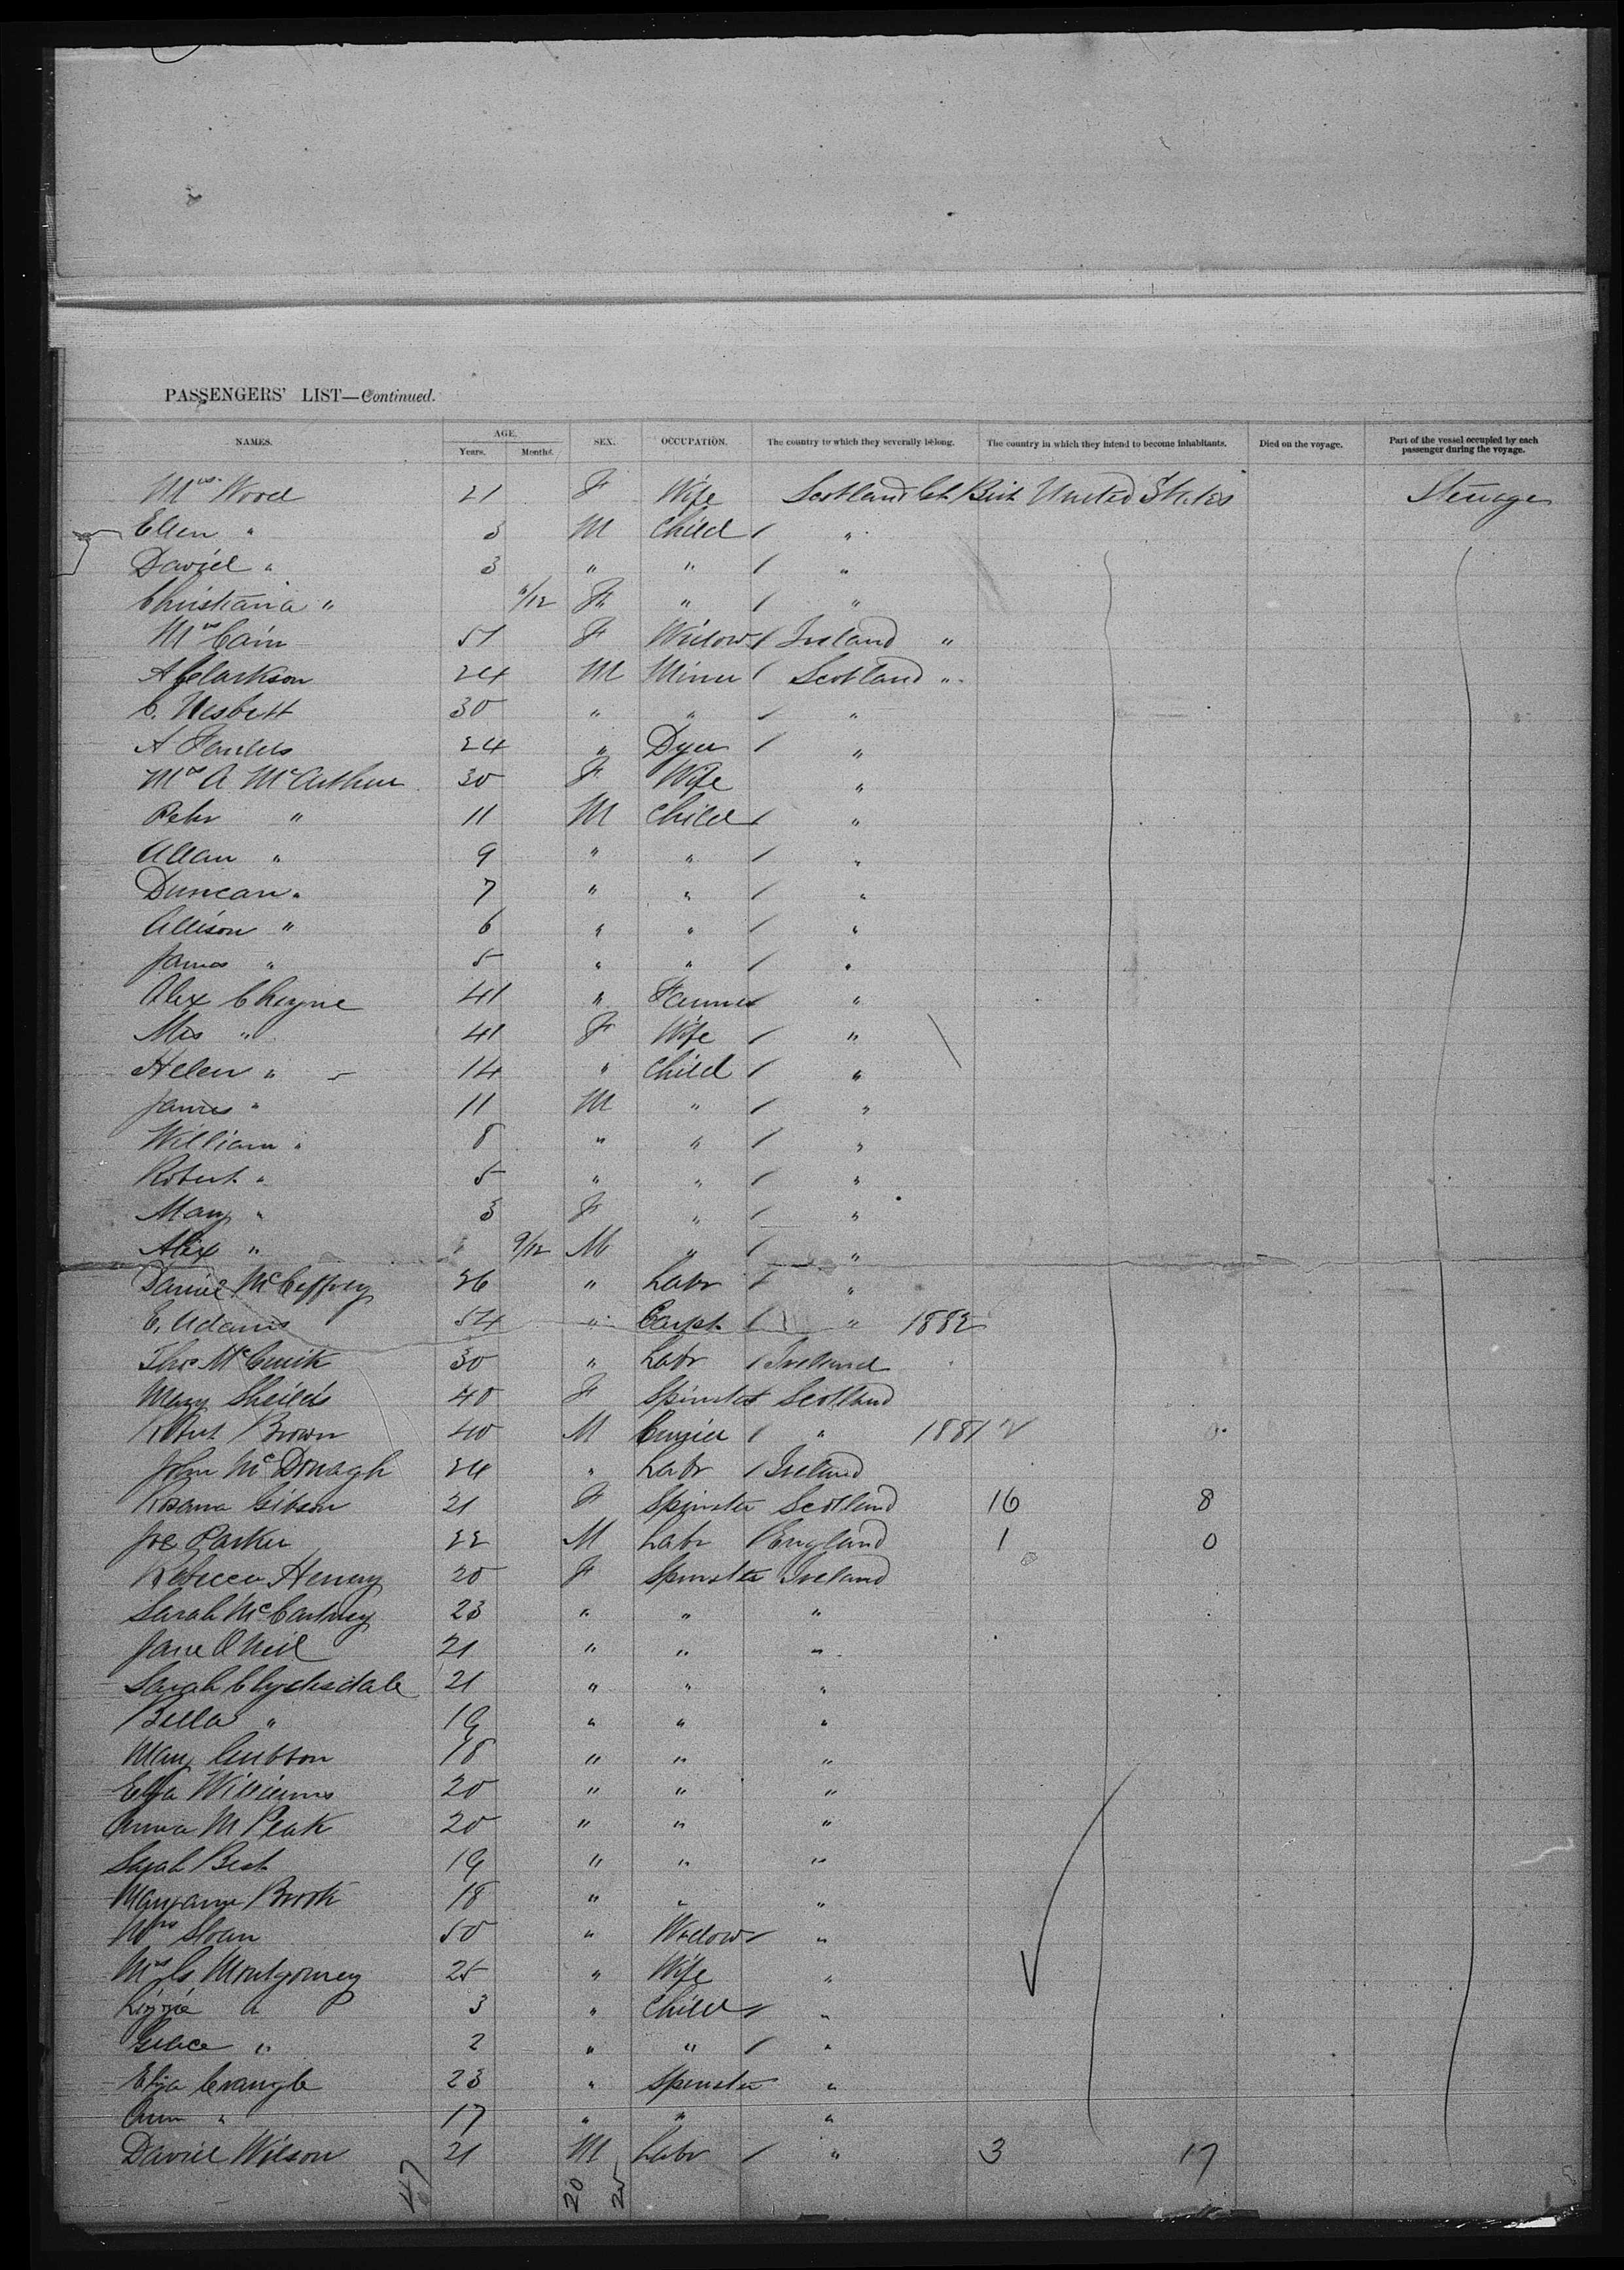 PASSENGERS' LIST—Continued.
NAMES. AGE. Years. Months. SEX. OCCUPATION. The country to which they severally belong. The country in which they intend to become inhabitants. Died on the voyage. Part of the vessel occupied by each passenger during the voyage.
Mrs Wood 21 F Wife Scotland Gt Brit United States Steerage
Ellen " 3 M Child / "
David " 3 " " / "
Christiana " /12 F " / "
Mrs Cain 51 F Widow / Ireland "
A Clarkson 24 M Miner / Scotland "
C. Nesbitt 30 " " / "
A Faulds 24 " Dyer / "
Mrs A McArthur 30 F Wife "
Peter " 11 M Child / "
Allan " 9 " " / "
Duncan " 7 " " / "
Allison " 6 " " / "
James " 5 " " / "
Alex Cheyne 41 " Farmer / "
Mrs " 41 F Wife / "
Helen " 14 " Child / "
James " 11 M " / "
William " 8 " " / "
Robert " 5 " " / "
Mary " 3 F " / "
Alex " 9/12 M " / "
Daniel McCeffrey 26 " Labr / "
E. Adams 54 " Carpt / " 1882
Thos 30 " Labr / Ireland
Mary Sheilds 40 F Spinster Scotland
Robert Brown 40 M / " 1881
John McDonagh 24 " Labr / Ireland
Rosana Gibson 21 F Spinster Scotland 16 8
Joe Parker 22 M Labr / England 1 0
Rebecca Henry 20 F Spinster Ireland
Sarah McCartney 23 " " "
Jane O Neil 21 " " "
Sarah Clydesdale 21 " " "
Bella " 19 " " "
Mary 18 " " "
Eliza Williams 20 " " "
Anna M Peak 20 " " "
Sarah Best 19 " " "
Maryann Brook 18 " " "
Mrs Sloan 50 " Widow / "
Mrs Montgomery 25 " Wife "
Lizzie " 3 " Child / "
Grace " 2 " " / "
Eliza Crangle 23 " Spinster "
Ann " 17 " " "
David Wilson 21 M Labr / " 3 17
47 20 25